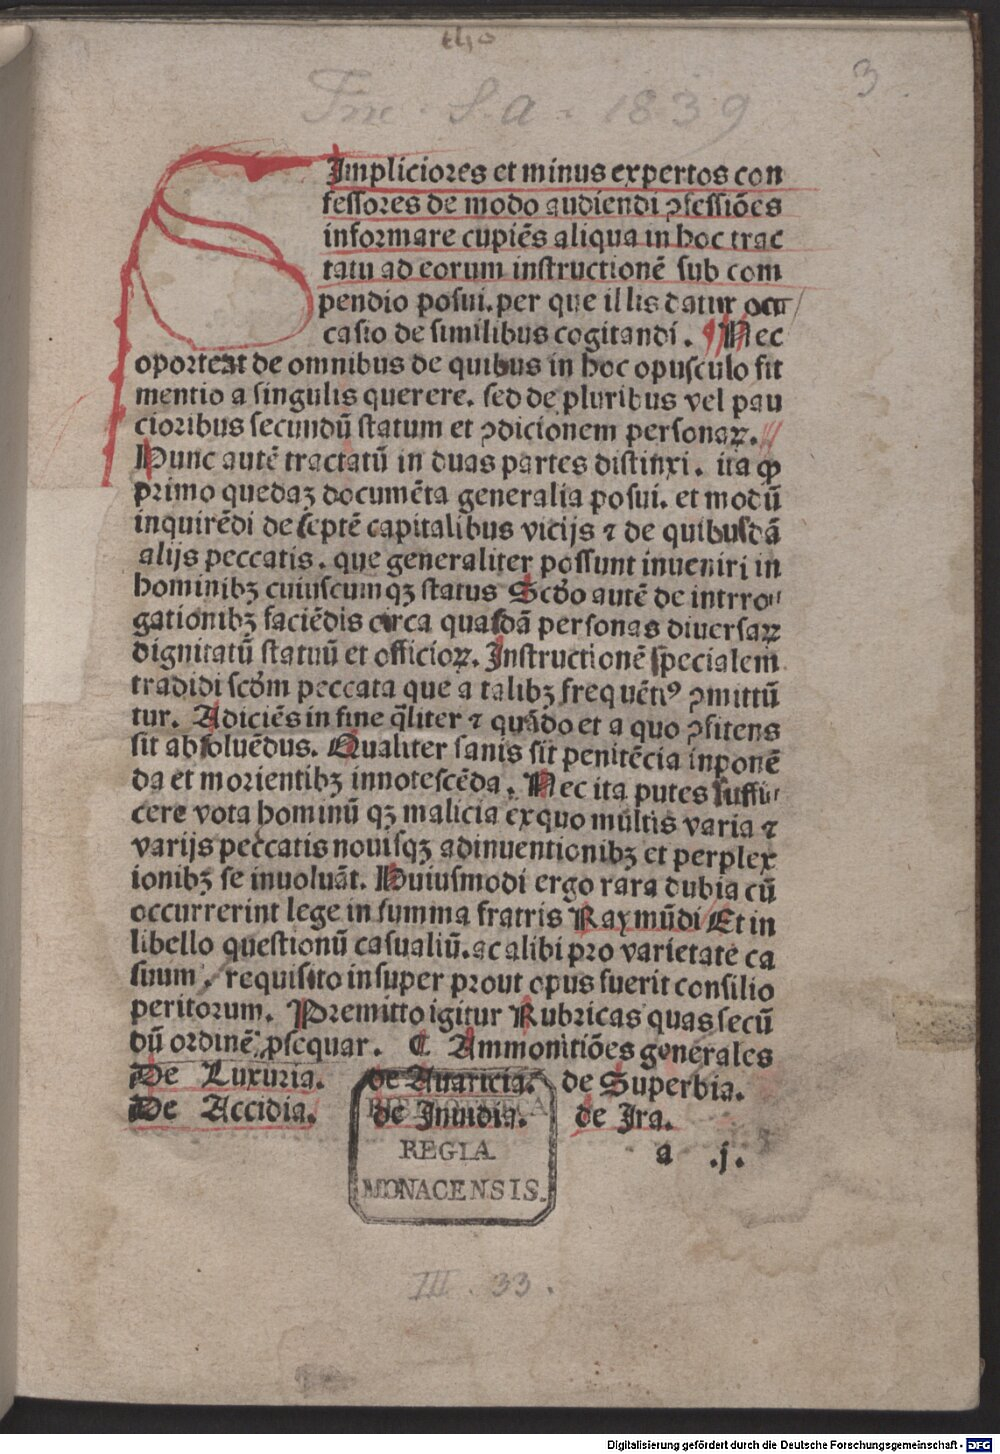 tho
3
Inc. S. a. 1839
SImpliciores et minus expertos con
fessores de modo audiendi ꝯfessiões
informare cupiẽs aliqua in hoc trac
tatu ad eorum instructionẽ sub com
pendio posui. per que illis datur occa
casio de similibus cogitandi. Nec
oportet de omnibus de quibus in hoc opusculo fit
mentio a singulis querere. sed de pluribus vel pau
cioribus secundũ statum et ꝯdicionem personaꝝ.
Hunc autẽ tractatũ in duas partes distinxi. ita ꝙ
primo quedaꝫ documẽta generalia posui. et modũ
inquirẽdi de septẽ capitalibus vicijs ⁊ de quibusdã
alijs peccatis. que generaliter possunt inueniri in
hominibꝫ cuiuscumqꝫ status Scđo autẽ de intrro
gationibꝫ faciẽdis circa quasdã personas diuersaꝝ
dignitatũ statuũ et officioꝝ. Instructionẽ specialem
tradidi scđm peccata que a talibꝫ frequẽtiꝰ ꝯmittũ
tur. Adiciẽs in fine q̃liter ⁊ quãdo et a quo ꝯfitens
sit absoluẽdus. Qualiter sanis sit penitẽcia inponẽ
da et morientibꝫ innotescẽda. Nec ita putes suffi
cere vota hominũ qꝫ malicia exquo multis varia ⁊
varijs peccatis nouisqꝫ adinuentionibꝫ et perplex
ionibꝫ se inuoluãt. Huiusmodi ergo rara dubia cũ
occurrerint lege in summa fratris Raymũdi Et in
libello questionũ casualiũ. ac alibi pro varietate ca
suum. requisito insuper prout opus fuerit consilio
peritorum. Premitto igitur Rubricas quas secũ
dũ ordinẽ ꝓsequar. ¶ Ammonitiões generales
De Luxuria. de Auaricia. de Superbia.
De Accidia. de Inuidia. de Ira.
a .j.
BIBLIOTHECA
REGIA
MONACENSIS.
III. 33.
Digitalisierung gefördert durch die Deutsche Forschungsgemeinschaft - DFG